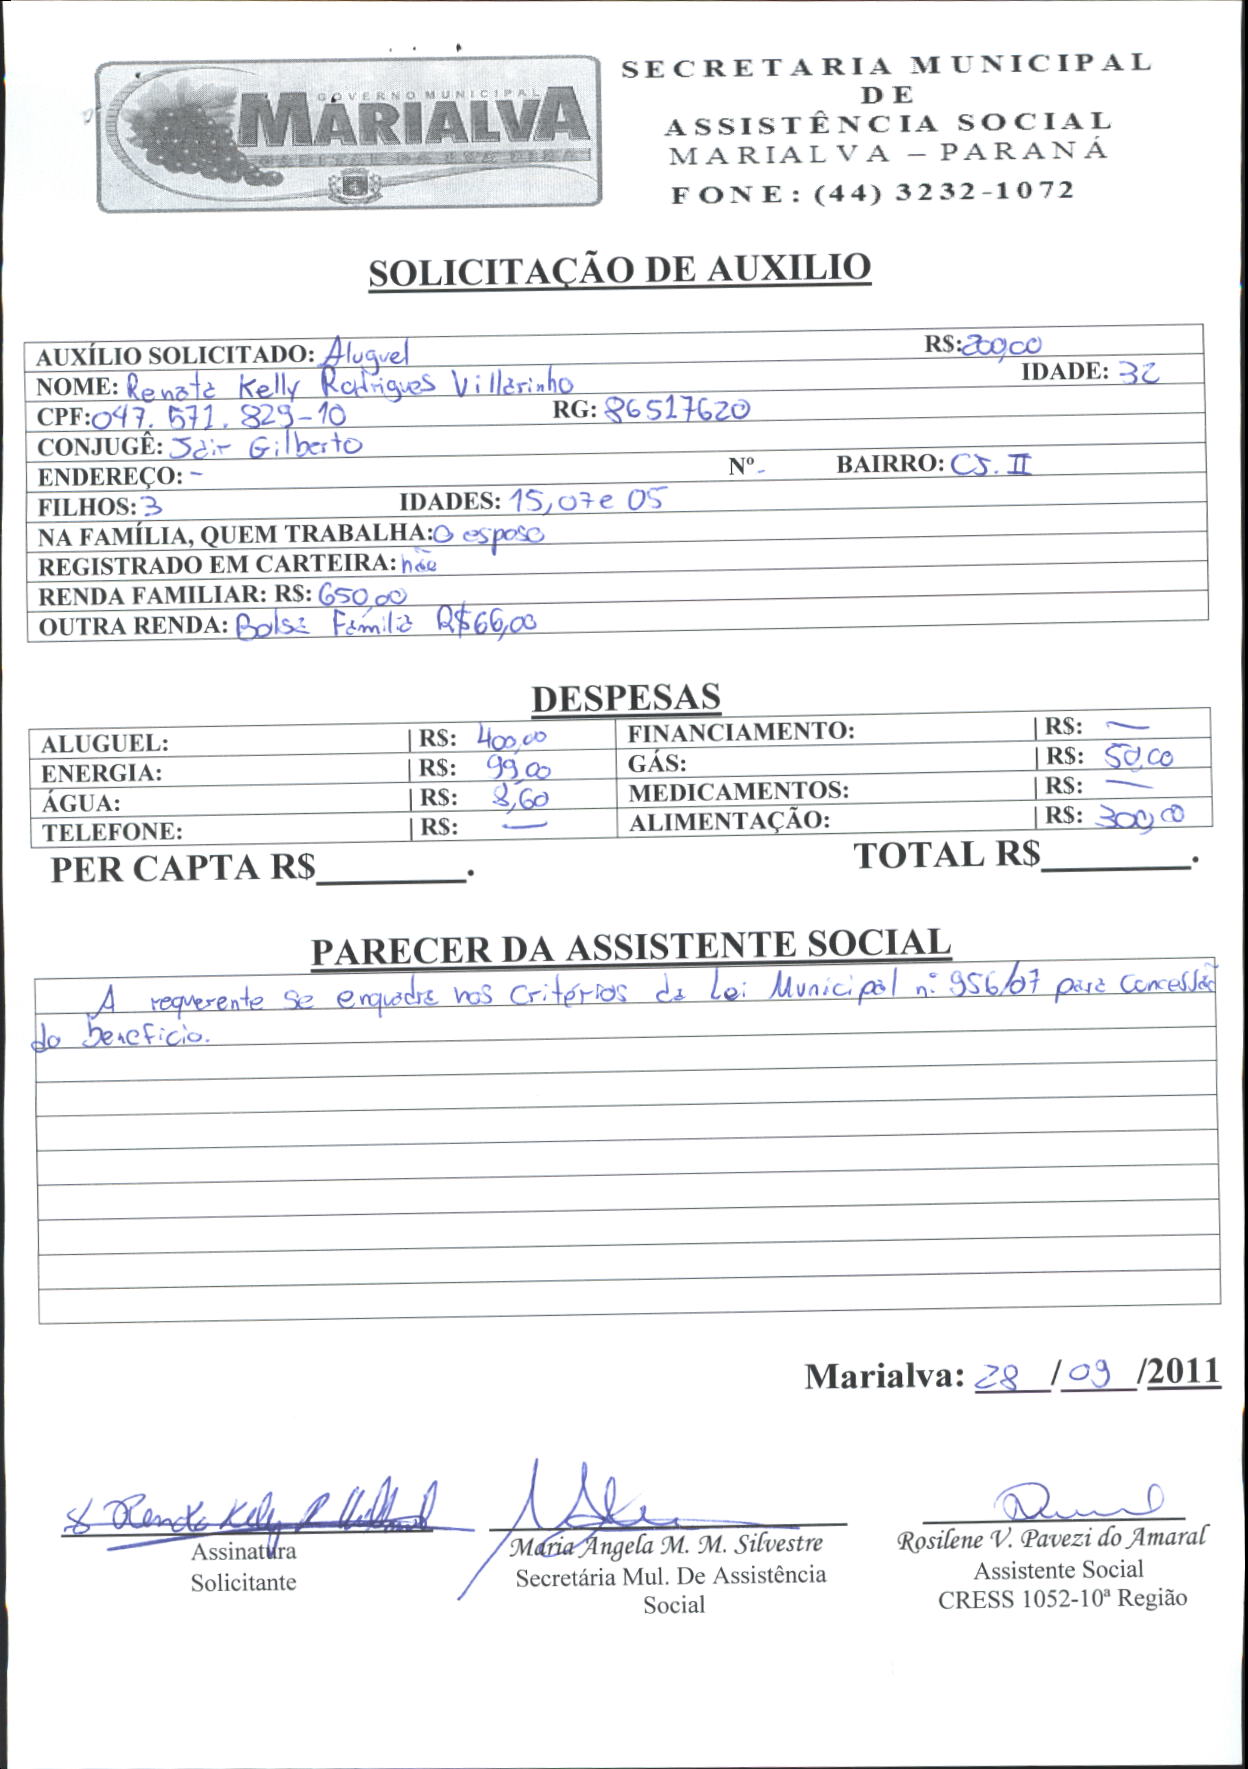 GOVERNO MUNICIPAL
MARIALVA
CAPITAL DA UVA FINA
SECRETARIA MUNICIPAL
DE
ASSISTÊNCIA SOCIAL
MARIALVA – PARANÁ
FONE: (44) 3232-1072
SOLICITAÇÃO DE AUXILIO
AUXÍLIO SOLICITADO: Aluguel R$: 200,00
NOME: Renata Kelly Rodrigues Villarinho IDADE: 32
CPF: 047.571.829-10 RG: 86517620
CONJUGÊ: Jair Gilberto
ENDEREÇO: - Nº - BAIRRO: CJ. II
FILHOS: 3 IDADES: 15, 07 e 05
NA FAMÍLIA, QUEM TRABALHA: O esposo
REGISTRADO EM CARTEIRA: não
RENDA FAMILIAR: R$: 650,00
OUTRA RENDA: Bolsa Família R$66,00
DESPESAS
ALUGUEL: | R$: 400,00 FINANCIAMENTO: | R$: —
ENERGIA: | R$: 99,00 GÁS: | R$: 50,00
ÁGUA: | R$: 8,60 MEDICAMENTOS: | R$: —
TELEFONE: | R$: — ALIMENTAÇÃO: | R$: 300,00
PER CAPTA R$________. TOTAL R$________.
PARECER DA ASSISTENTE SOCIAL
A requerente se enquadra nos critérios da Lei Municipal nº 956/07 para concessão
do benefício.
Marialva: 28 / 09 /2011
Renata Kelly R
Assinatura
Solicitante
Maria Angela M. M. Silvestre
Secretária Mul. De Assistência
Social
Rosilene V. Pavezi do Amaral
Assistente Social
CRESS 1052-10ª Região